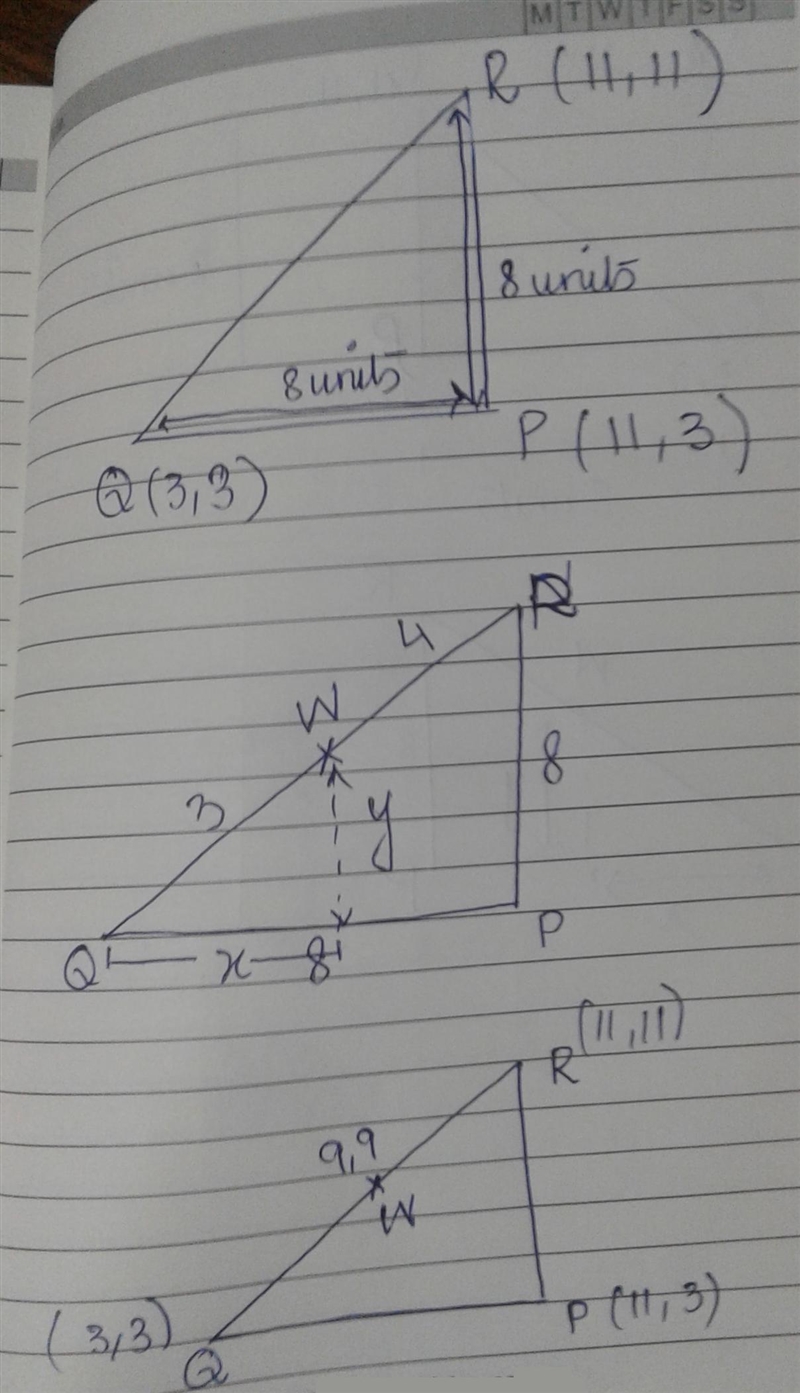 M T W T F S S
R (11,11)
8 units
8 units
P (11,3)
Q (3,3)
R
4
W
3
y
8
P
Q
x
8
(11,11)
R
9,9
W
(3,3)
P (11,3)
Q